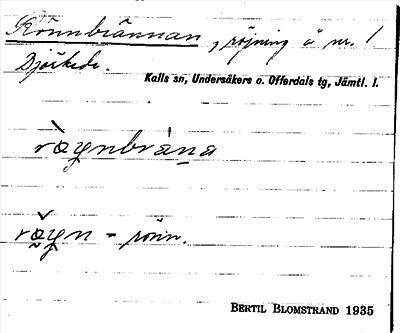 Rönnbrännan, röjning å nr. 1
Björkede.
Kalls sn, Undersåkers o. Offerdals tg, Jämtl. l.
ròynbrà̈na
rǒyn = rönn.
BERTIL BLOMSTRAND 1935